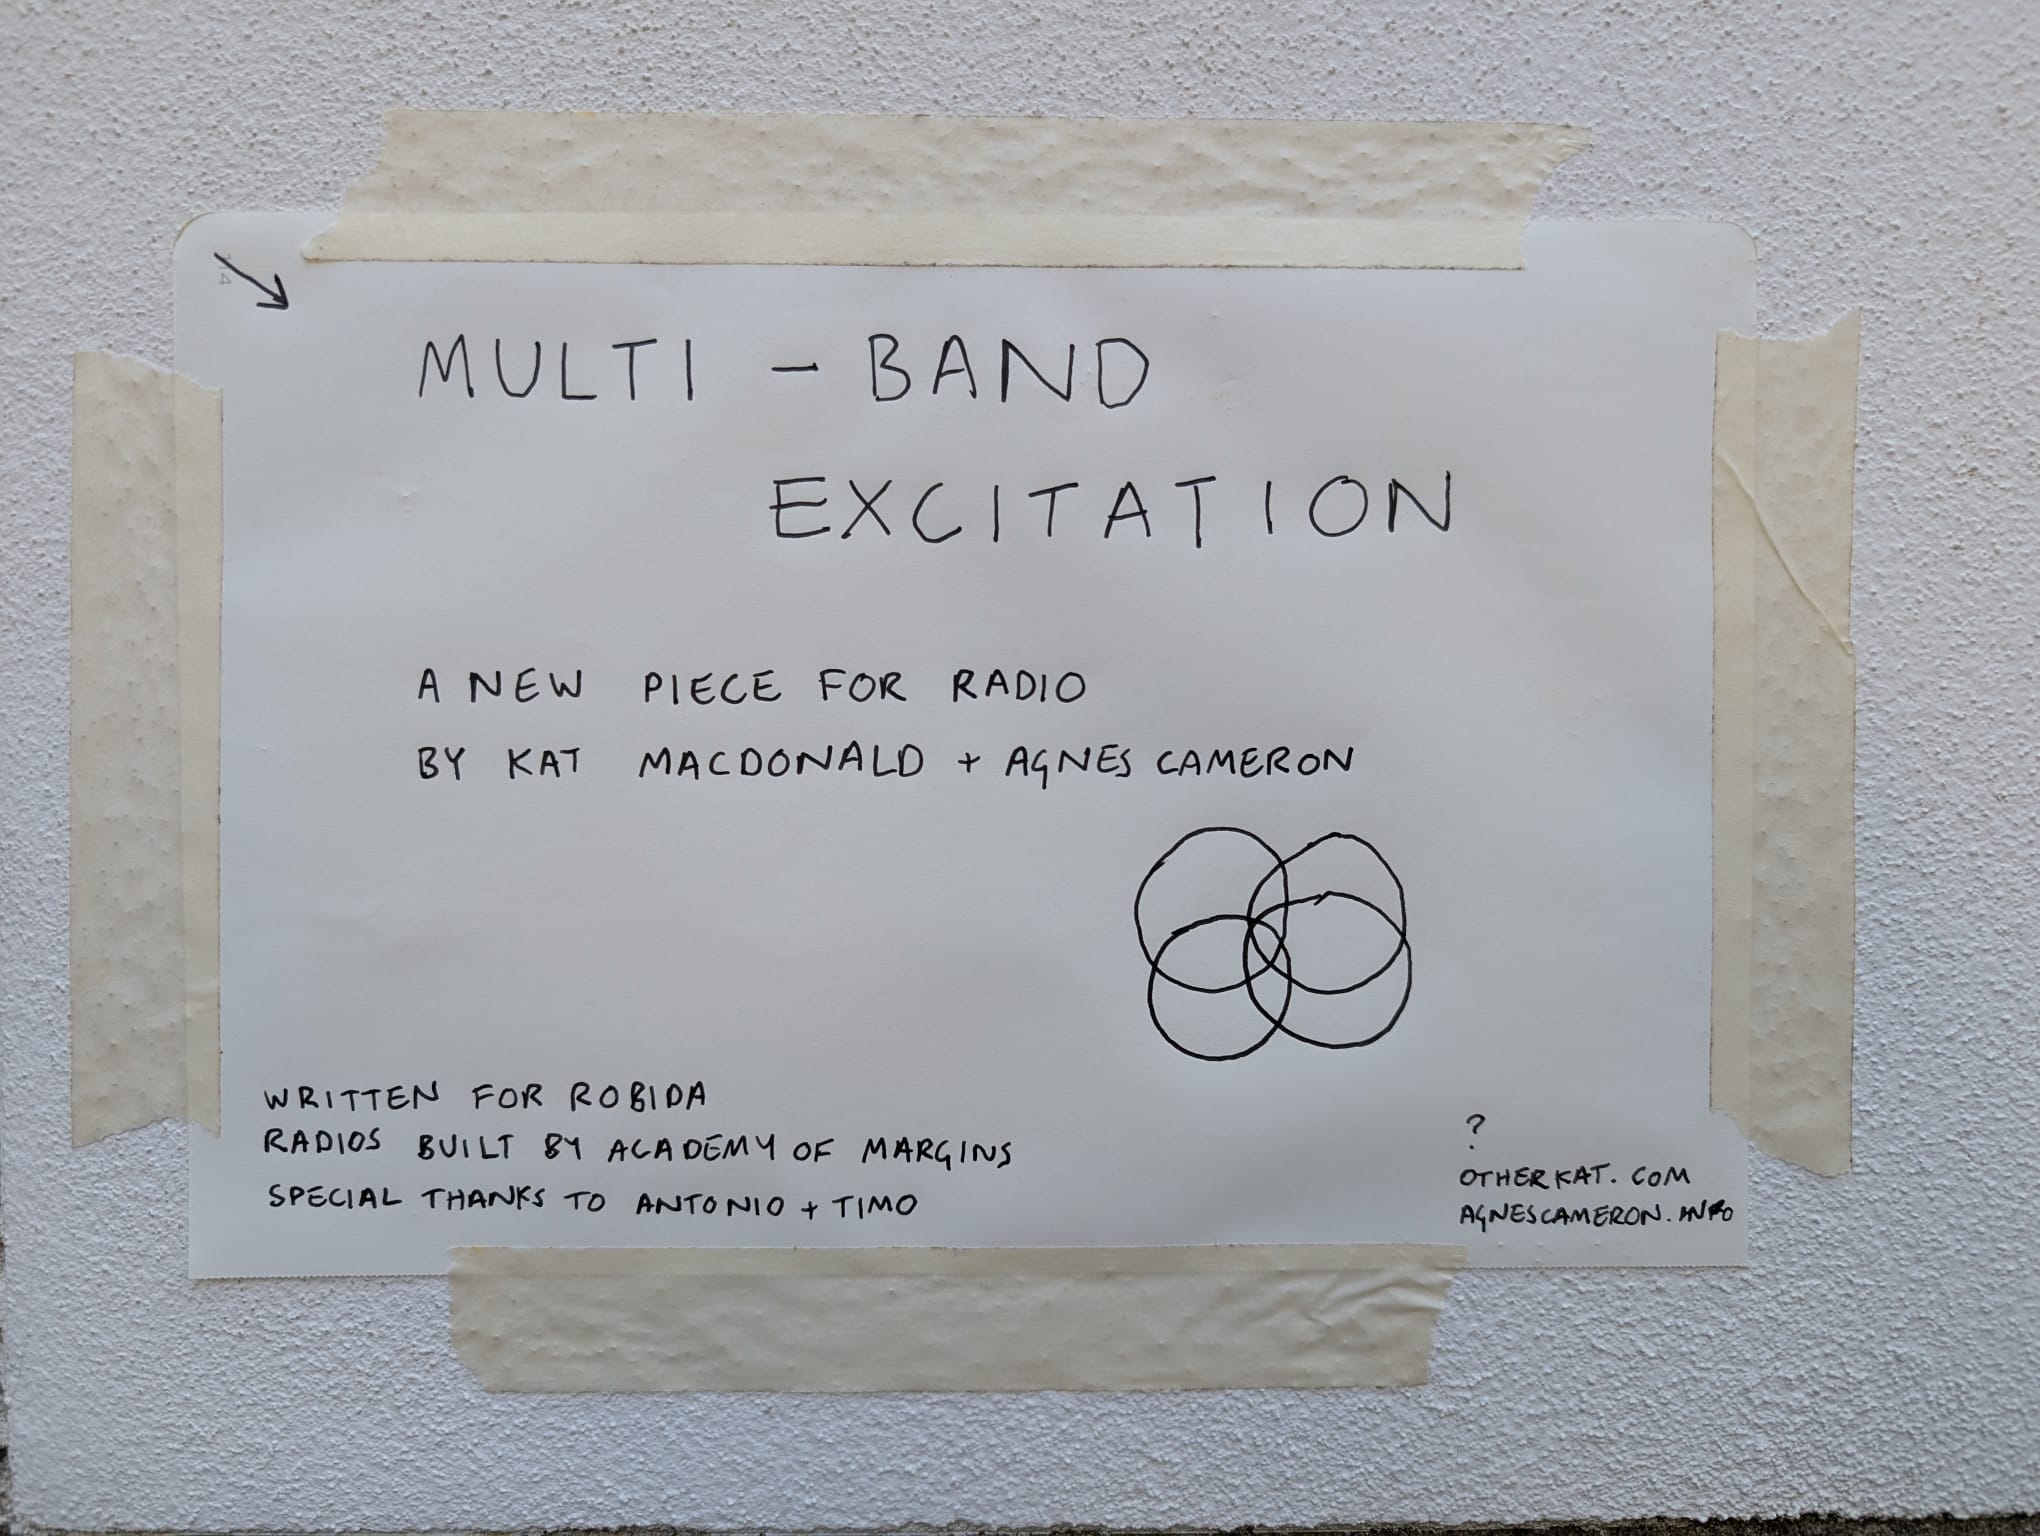 MULTI - BAND
EXCITATION
A NEW PIECE FOR RADIO
BY KAT MACDONALD + AGNES CAMERON
WRITTEN FOR ROBIDA
RADIOS BUILT BY ACADEMY OF MARGINS
SPECIAL THANKS TO ANTONIO + TIMO
?
OTHERKAT.COM
AGNESCAMERON.INFO